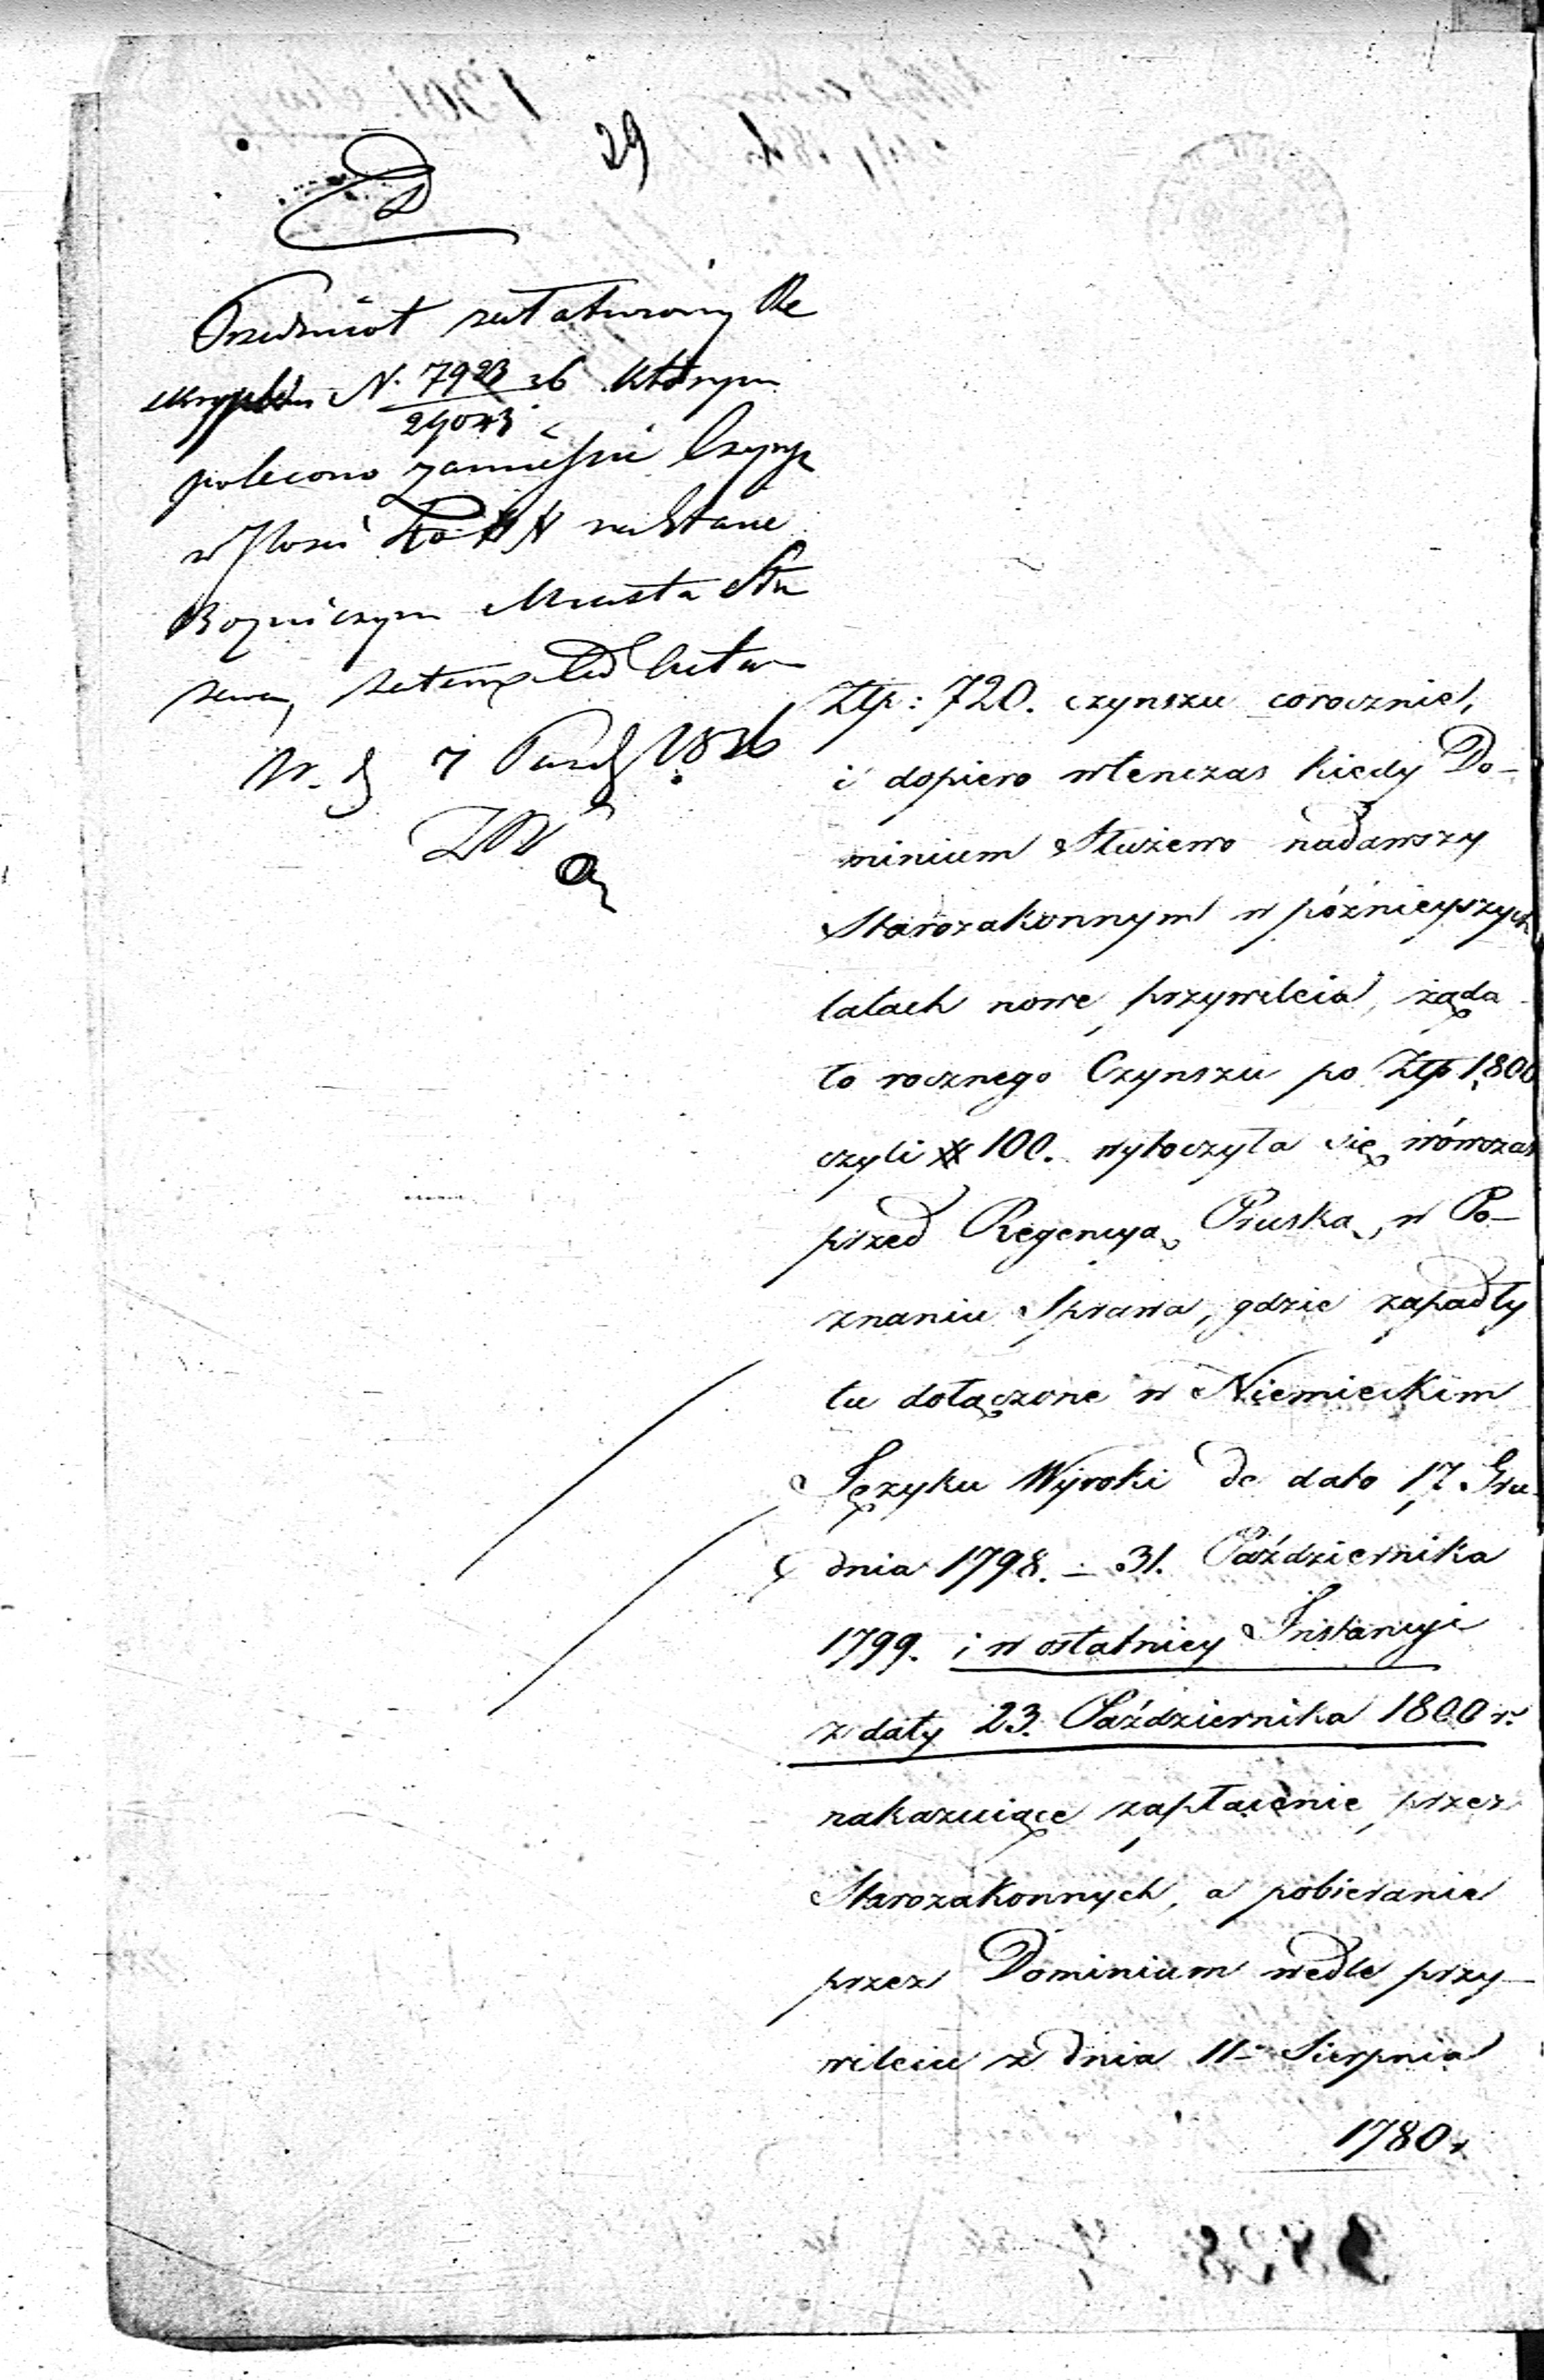 29
Przedmiot załatwiony Re
skryptem N. 7923/29043 36 którym
polecono zamieścić Czynsz
w Ilości
Bożniczym Miasta Słu
żewa, zatem ad acta
W. d 7 Paźd 1836
Złp: 720. czynszu corocznie,
i dopiero wtenczas kiedy Do-
minium Służewo nadawszy
Starozakonnym w późnieyszych
latach nowe przywileia, żąda
ło rocznego Czynszu po Złp 1800
czyli # 100. wytoczyła się wówczas
przed Regencyą Pruską w Po-
znaniu Sprawa, gdzie zapadły
tu dołączone w Niemieckim
Języku Wyroki de dato 17. Gru-
dnia 1798. – 31. Października
1799. i w ostatniey Instancyi
z daty 23. Października 1800 r.
nakazuiące zapłacenie przez
Starozakonnych, a pobieranie
przez Dominium wedle przy-
wileiu z dnia 11 Sierpnia
1780 r